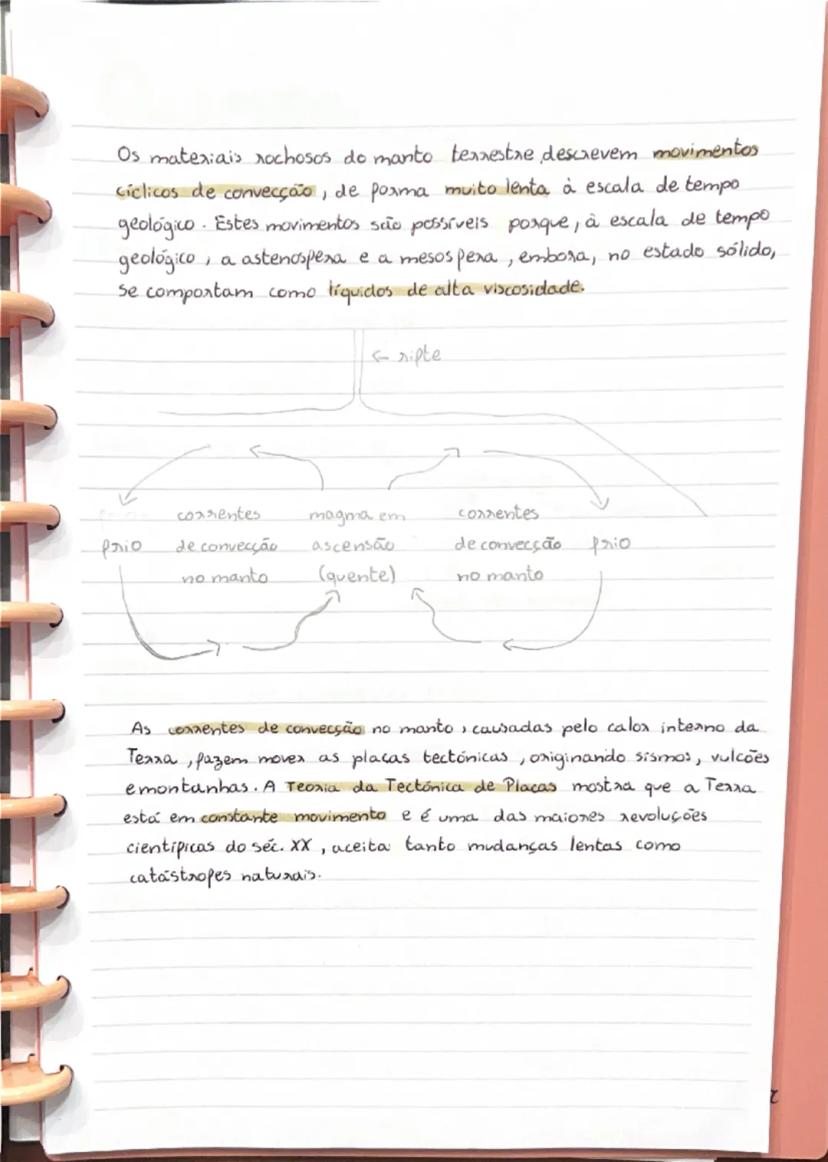 Os materiais rochosos do manto terrestre descrevem movimentos
cíclicos de convecção, de forma muito lenta à escala de tempo
geológico. Estes movimentos são possíveis porque, à escala de tempo
geológico, a astenosfera e a mesosfera, embora, no estado sólido,
se comportam como líquidos de alta viscosidade.
← rifte
correntes magma em correntes
frio de convecção ascensão de convecção frio
no manto (quente) no manto
As correntes de convecção no manto, causadas pelo calor interno da
Terra, fazem mover as placas tectónicas, originando sismos, vulcões
e montanhas. A Teoria da Tectónica de Placas mostra que a Terra
está em constante movimento e é uma das maiores revoluções
científicas do séc. XX, aceita tanto mudanças lentas como
catástrofes naturais.